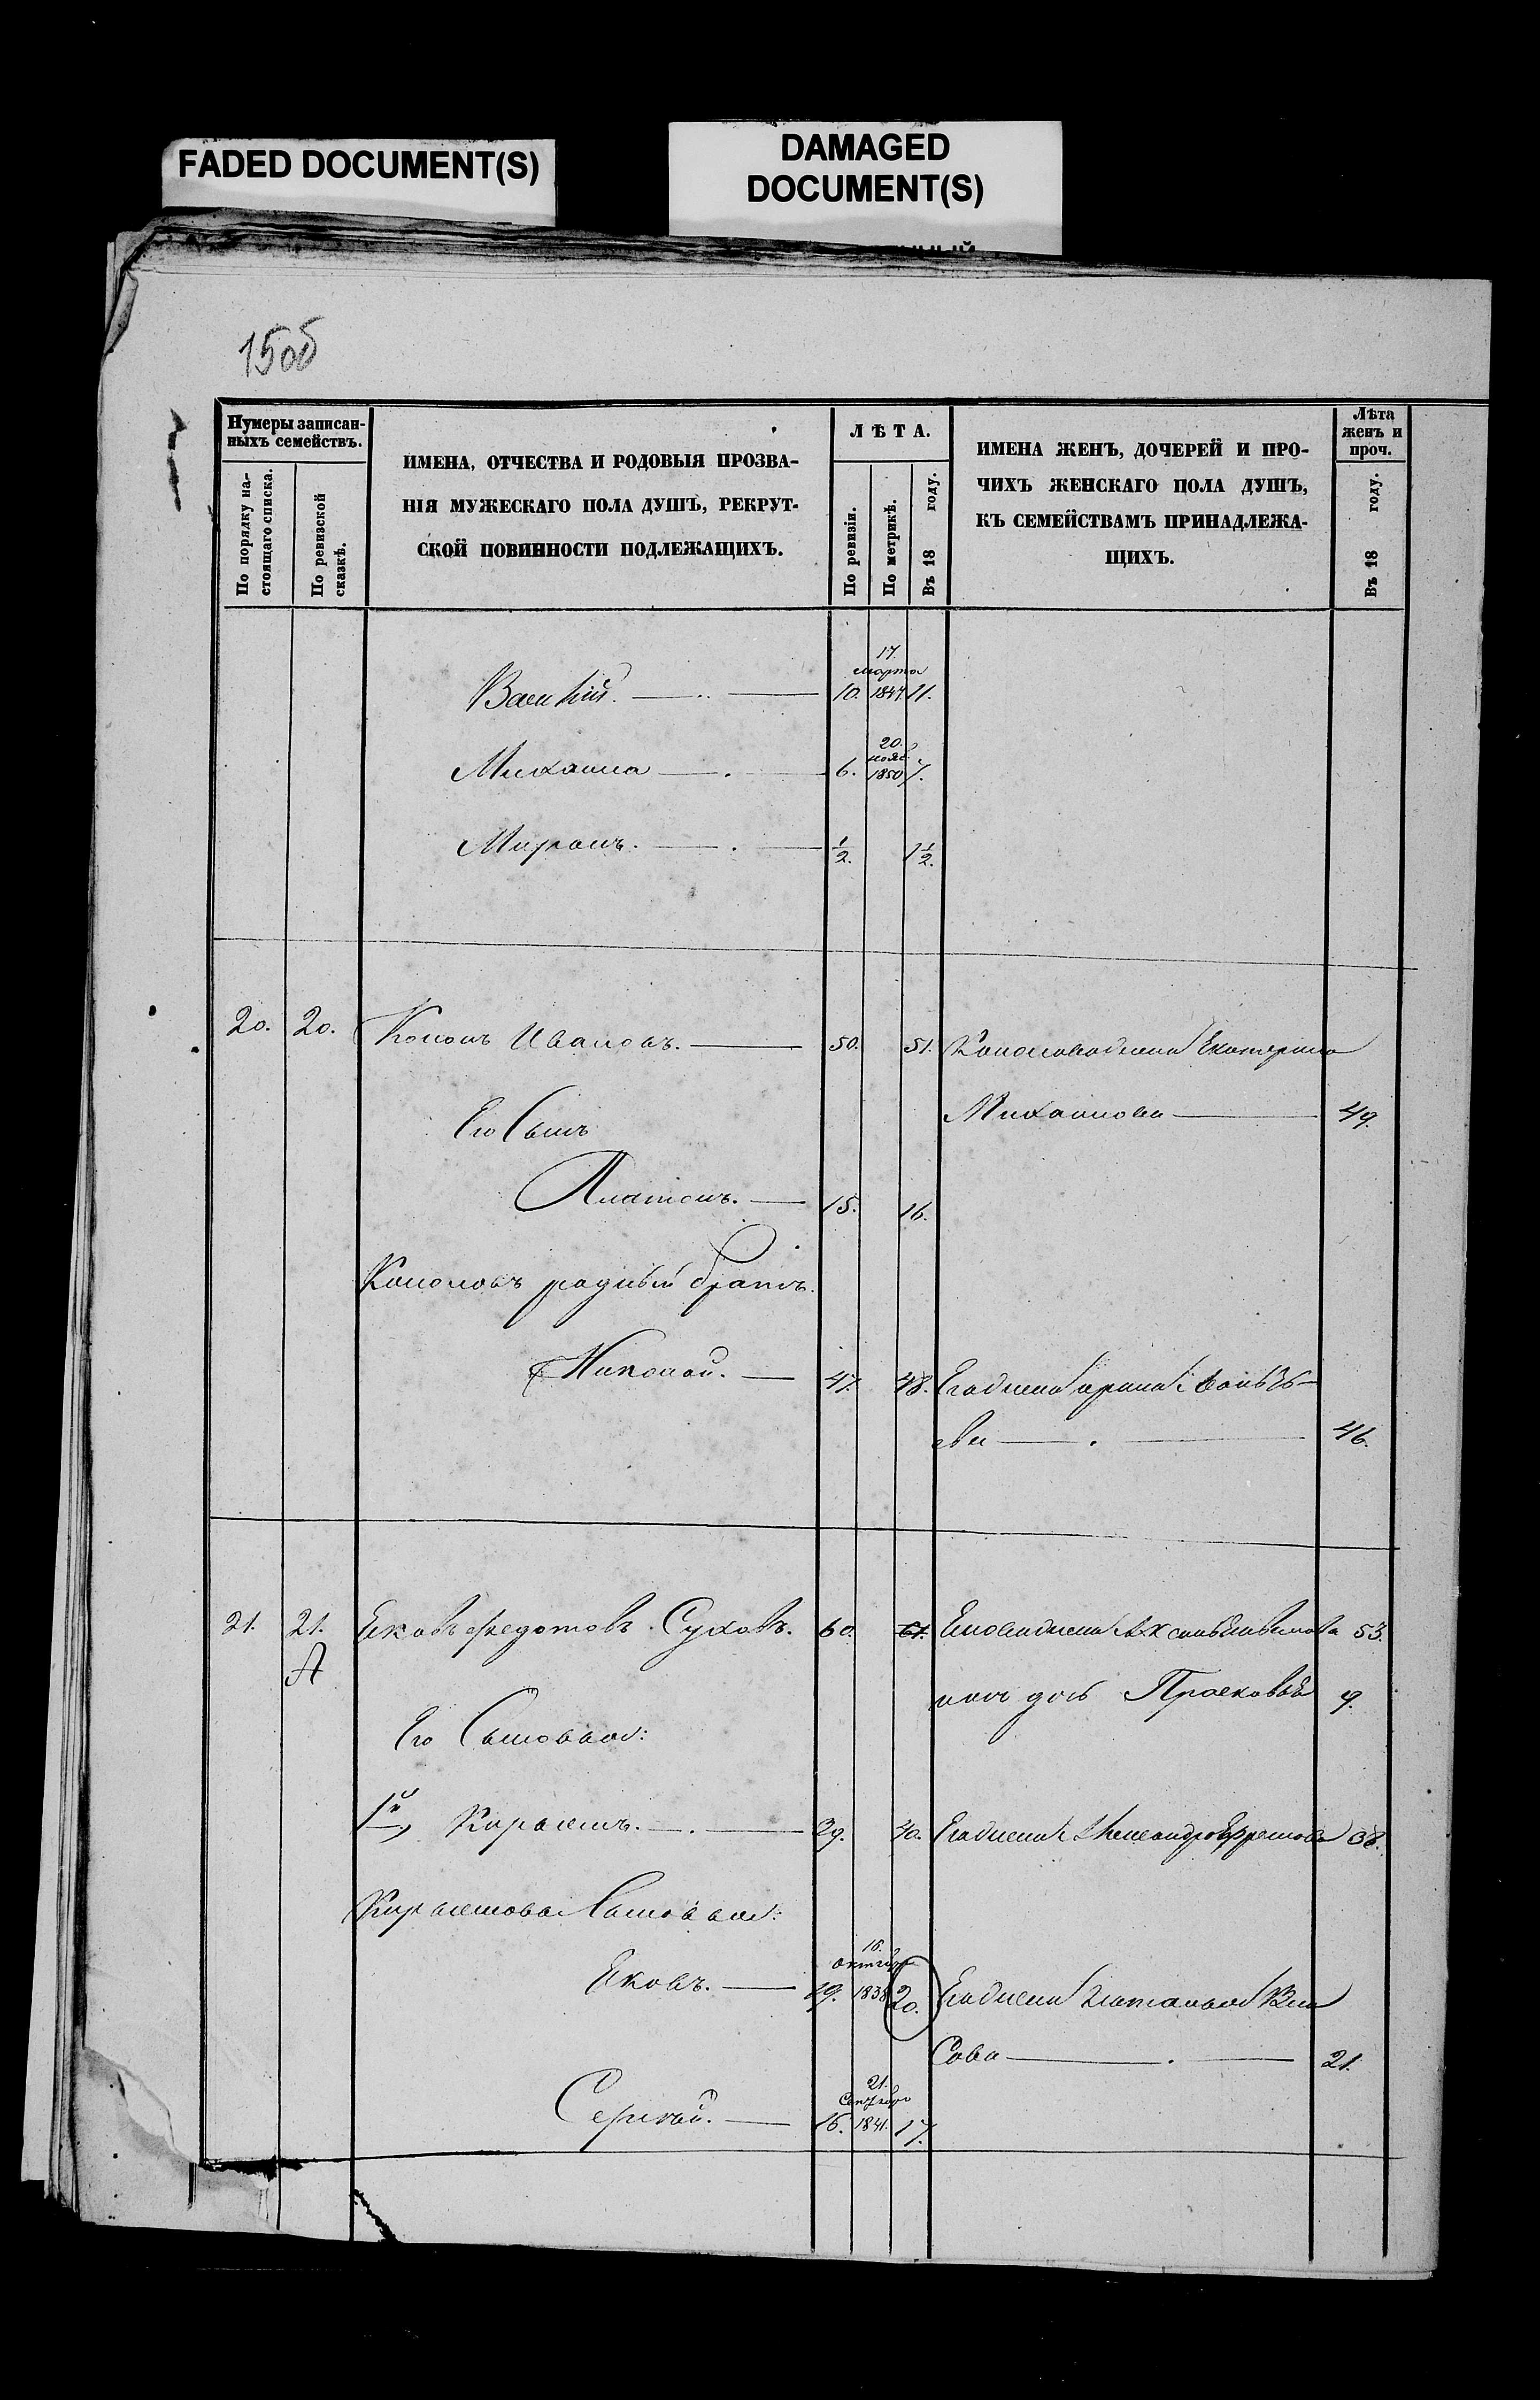 FADED DOCUMENT(S)
DAMAGED
DOCUMENT(S)
15об
Нумеры записан-
ныхъ семействъ.
По порядку на-
стоящаго списка.
По ревизской
сказкѣ.
ИМЕНА, ОТЧЕСТВА И РОДОВЫЯ ПРОЗВА-
НІЯ МУЖЕСКАГО ПОЛА ДУШЪ, РЕКРУТ-
СКОЙ ПОВИННОСТИ ПОДЛЕЖАЩИХЪ.
ЛѢТА.
По ревизіи.
По метрикѣ.
Въ 18 году.
ИМЕНА ЖЕНЪ, ДОЧЕРЕЙ И ПРО-
ЧИХЪ ЖЕНСКАГО ПОЛА ДУШЪ,
КЪ СЕМЕЙСТВАМЪ ПРИНАДЛЕЖА-
ЩИХЪ.
Лѣта
женъ и
проч.
Въ 18 году.
17.
марта
Василій. 10. 1847. 11.
20.
нояб.
Михаила 6. 1850 7.
Миронъ. 1/2. 1 1/2.
20. 20. Кононъ Ивановъ. 50. 51. Кононова жена Екатерина
Михаилова 49.
Его Сынъ
Платонъ. 15. 16.
Кононовъ родный братъ.
Николай. 47. 48. Его жена
46.
21. 21. Яковъ Федотовъ Суховъ. 60. 61. Якова жена 53.
А
дочь Прасковья 9.
Его Сыновья:
1й, Кирсанъ. 39. 40. Его жена Александра Ефремова 38.
Кирсановы Сыновья:
16.
октября
Яковъ. 19. 1838 20. Его жена Наталья Вла
Сова 21.
21.
Сентября
Сергѣй. 16. 1841. 17.